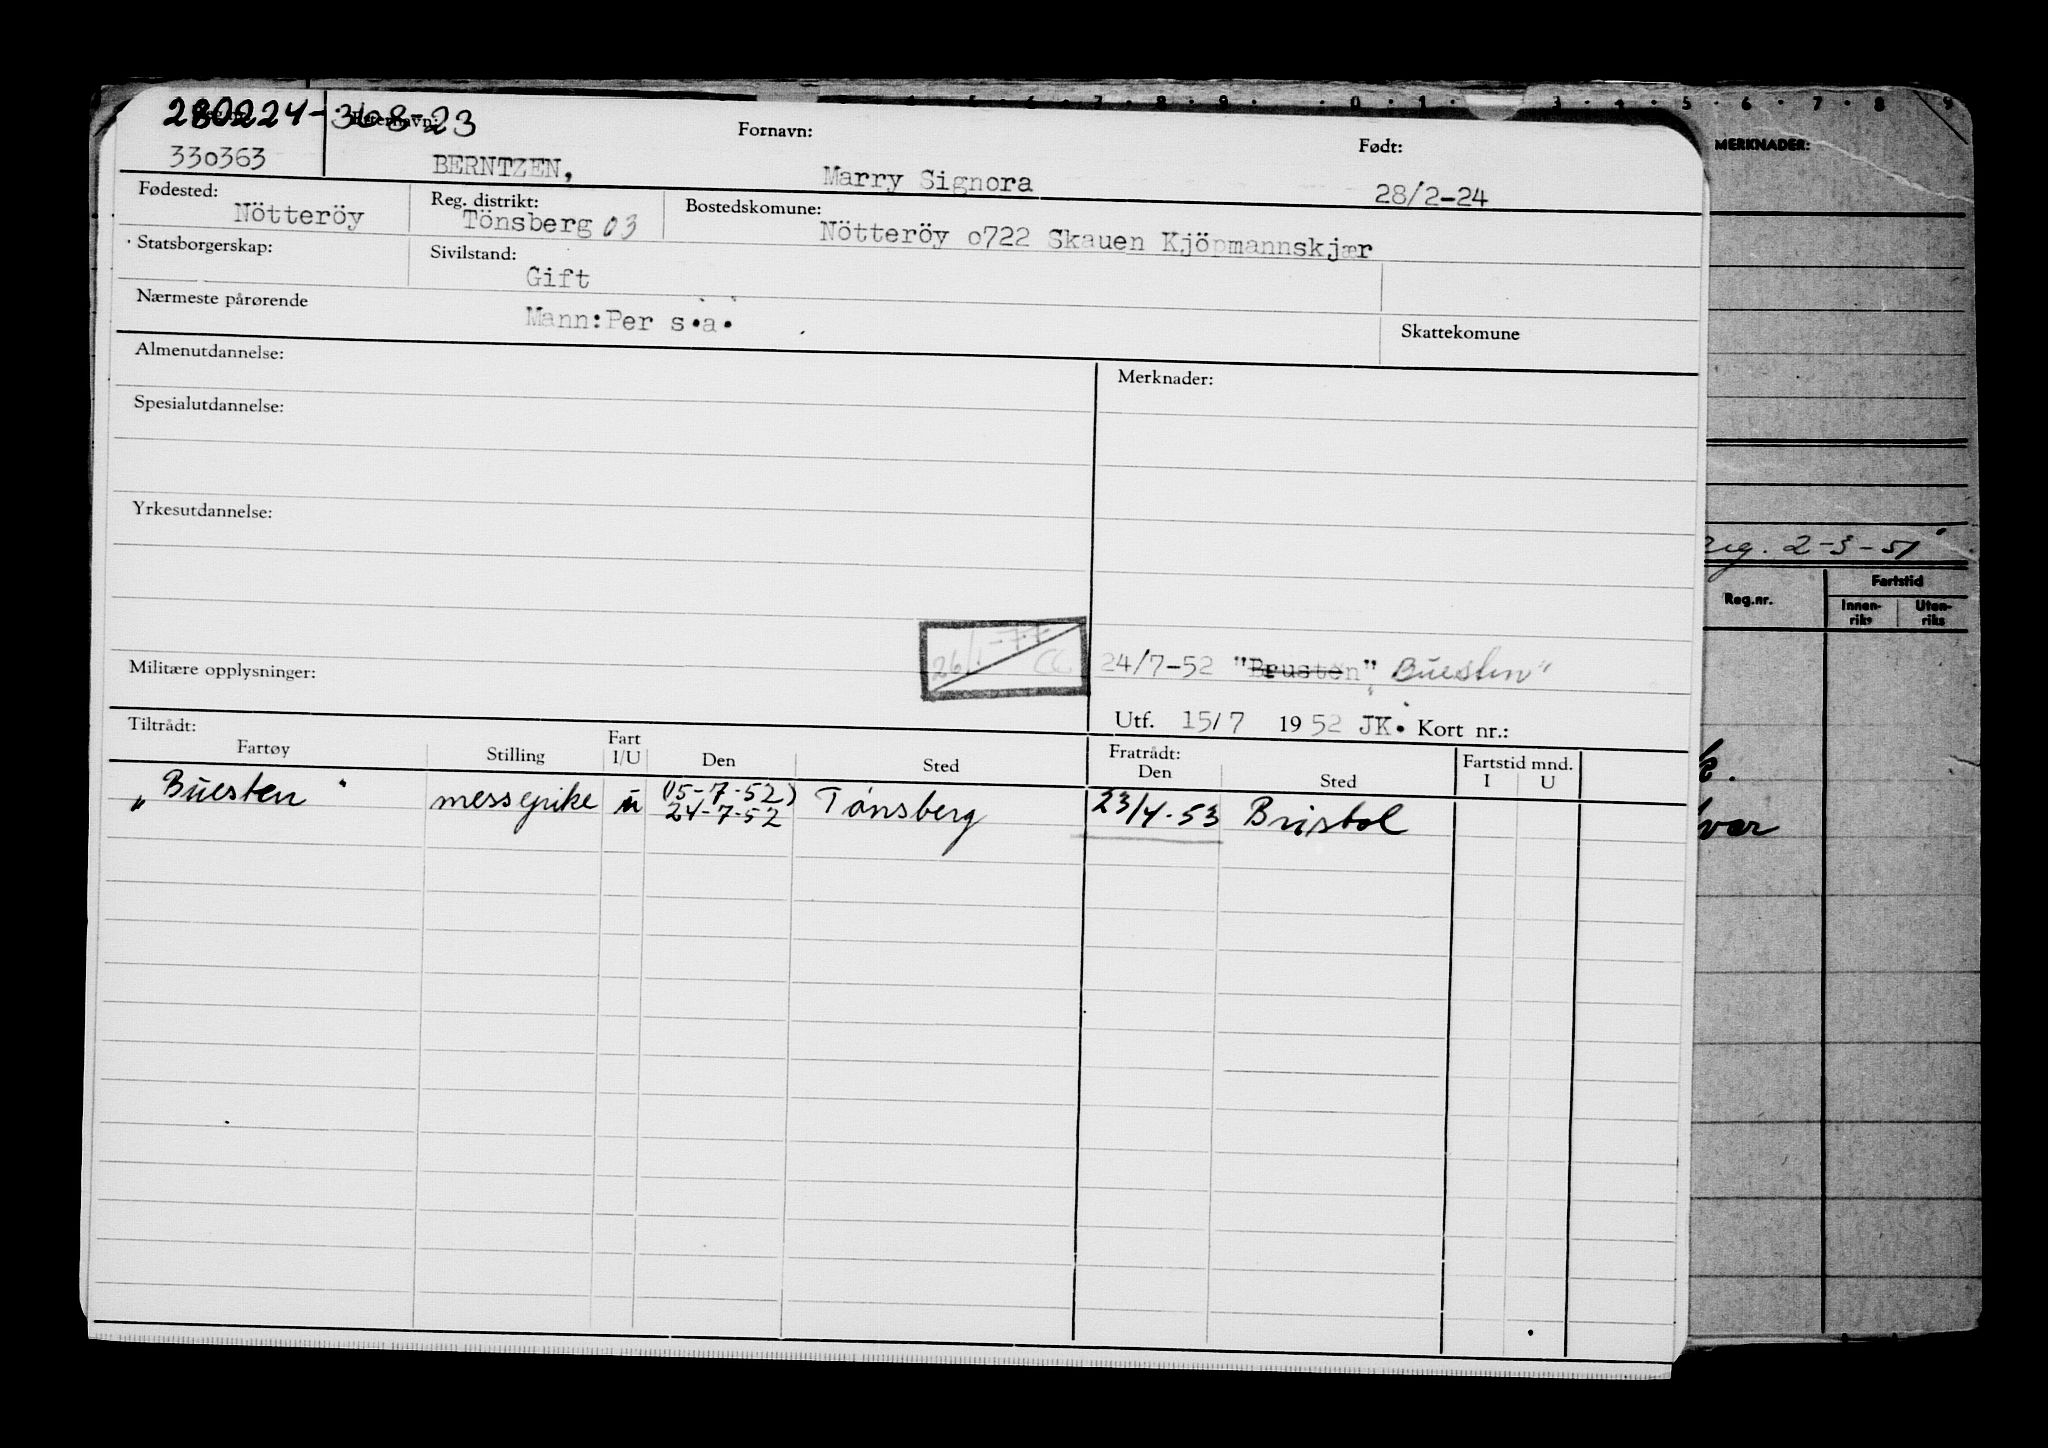 280224-36823
Etternavn:
Fornavn:
Født:
330363
BERNTZEN,
Marry Signora
28/2-24
Fødested:
Nötteröy
Reg. distrikt:
Tönsberg 03
Bostedskomune:
Nötteröy o722 Skauen Kjöpmannskjær
Statsborgerskap:
Sivilstand:
Gift
Nærmeste pårørende
Mann:Per s.a.
Skattekomune
Almenutdannelse:
Merknader:
Spesialutdannelse:
Yrkesutdannelse:
26/1-77
CC
Militære opplysninger:
24/7-52 "Brusten" "Buesten"
Utf. 15/7 1952 JK. Kort nr.:
Tiltrådt:
Fartøy
Stilling
Fart
I/U
Den
Sted
Fratrådt:
Den
Sted
Fartstid mnd.
I U
"Buesten" messepike u (15-7-52) Tönsberg 23/4-53 Bristol
24-7-52
3 4 5 6 7 8 9 0 1 3 4 5 6 7 8 9
MERKNADER:
reg. 2-3-51
Reg.nr.
Fartstid
Innen-
riks
Uten-
riks
k.
var